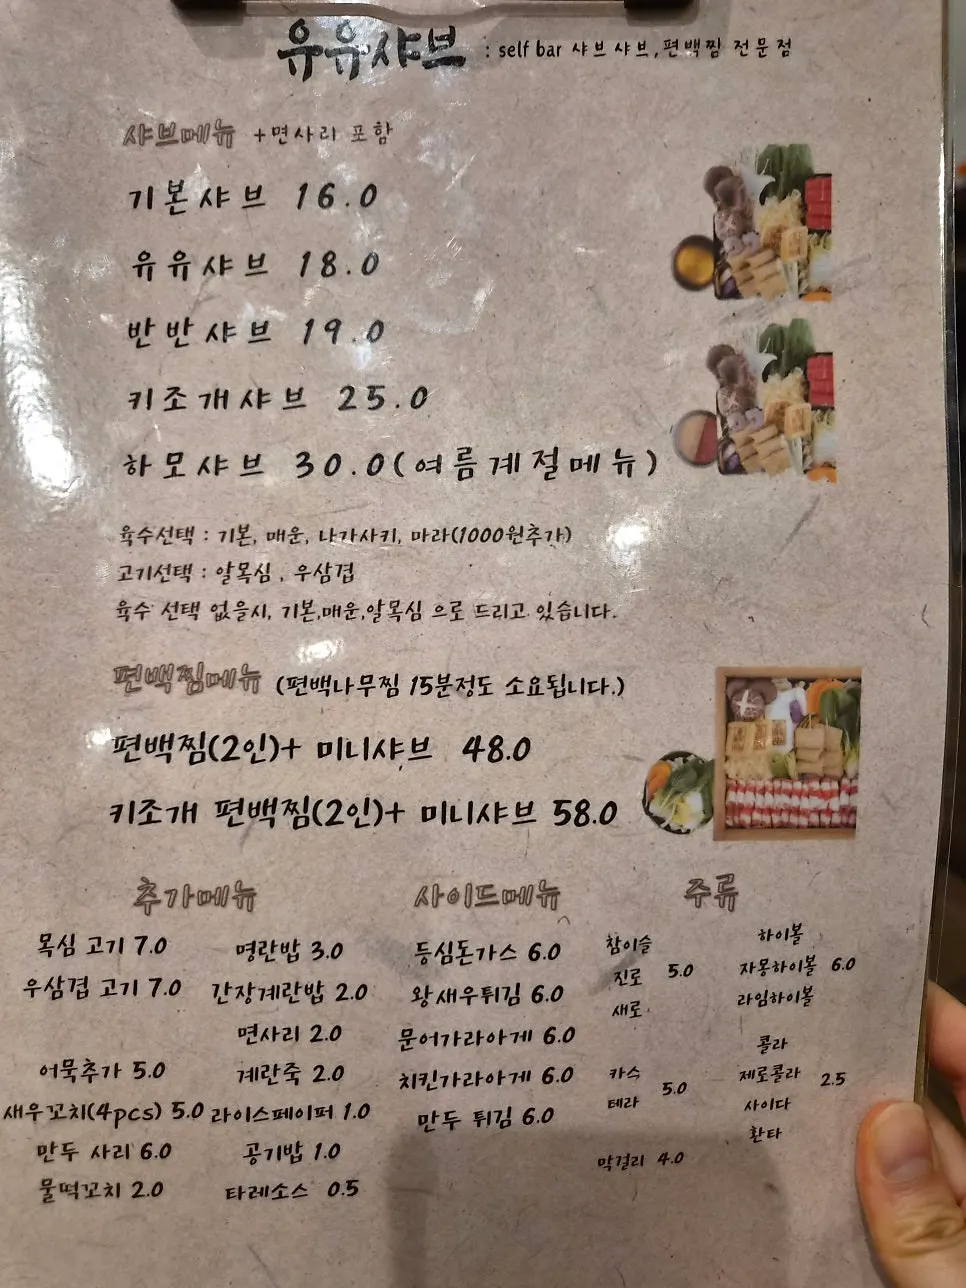 유유샤브 : self bar 샤브샤브, 편백찜 전문점
샤브메뉴 +면사리 포함
기본샤브 16.0
유유샤브 18.0
반반샤브 19.0
키조개샤브 25.0
하모샤브 30.0(여름계절메뉴)
육수선택 : 기본, 매운, 나가사키, 마라(1000원추가)
고기선택 : 알목심, 우삼겹
육수 선택 없을시, 기본,매운,알목심 으로 드리고 있습니다.
편백찜메뉴 (편백나무찜 15분정도 소요됩니다.)
편백찜(2인)+ 미니샤브 48.0
키조개 편백찜(2인)+ 미니샤브 58.0
추가메뉴
목심 고기 7.0
우삼겹 고기 7.0
어묵추가 5.0
새우꼬치(4pcs) 5.0
만두 사리 6.0
물떡꼬치 2.0
명란밥 3.0
간장계란밥 2.0
면사리 2.0
계란죽 2.0
라이스페이퍼 1.0
공기밥 1.0
타레소스 0.5
사이드메뉴
등심돈가스 6.0
왕새우튀김 6.0
문어가라아게 6.0
치킨가라아게 6.0
만두 튀김 6.0
주류
참이슬
진로 5.0
새로
카스
테라 5.0
막걸리 4.0
하이볼
자몽하이볼 6.0
라임하이볼
콜라
제로콜라 2.5
사이다
환타